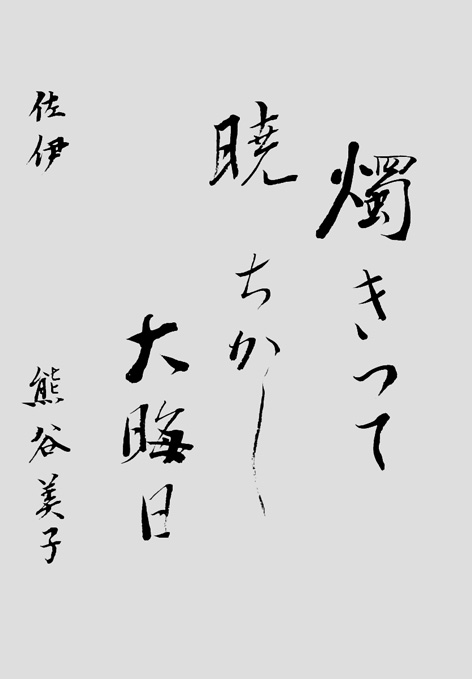 燭きつて
暁ちかし
大晦日
佐伊 熊谷美子